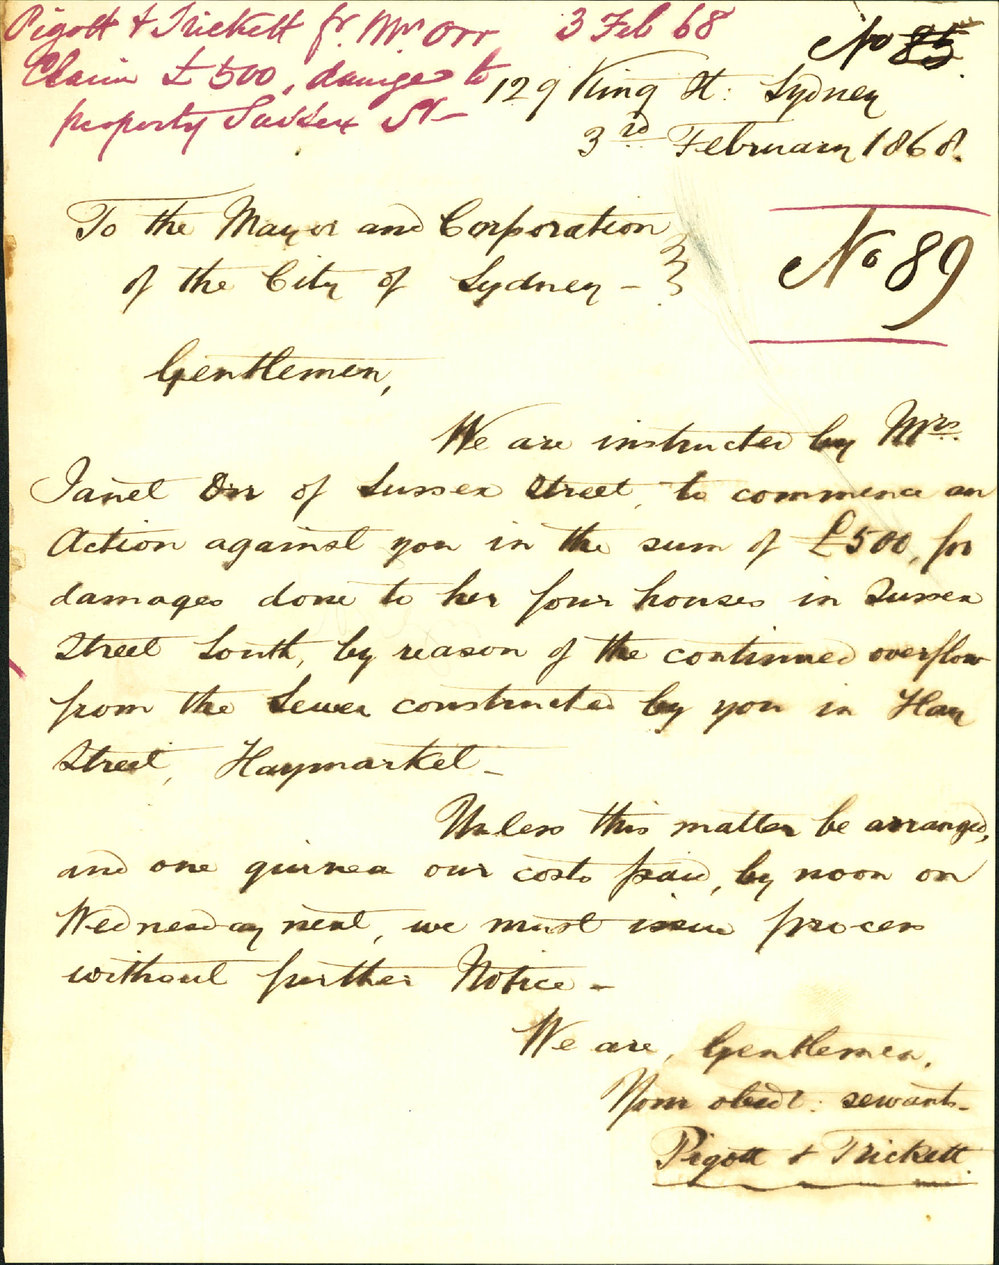 Pigott & Trickett fr. Mrs Orr
Claim £500, damages to
property Sussex St-
3 Feb 68
No 85
129 King St: Sydney
3rd February 1868.
No 89
To the Mayor and Corporation
of the City of Sydney -
Gentlemen,
We are instructed by Mrs.
Janet Orr of Sussex Street, to commence an
Action against you in the sum of £500, for
damages done to her four houses in Sussex
Street South, by reason of the continued overflow
from the Sewer constructed by you in Hay
Street, Haymarket -
Unless this matter be arranged,
and one guinea our costs paid, by noon on
Wednesday next, we must issue process
without further Notice -
We are, Gentlemen,
Your obedt: servants -
Pigott & Trickett